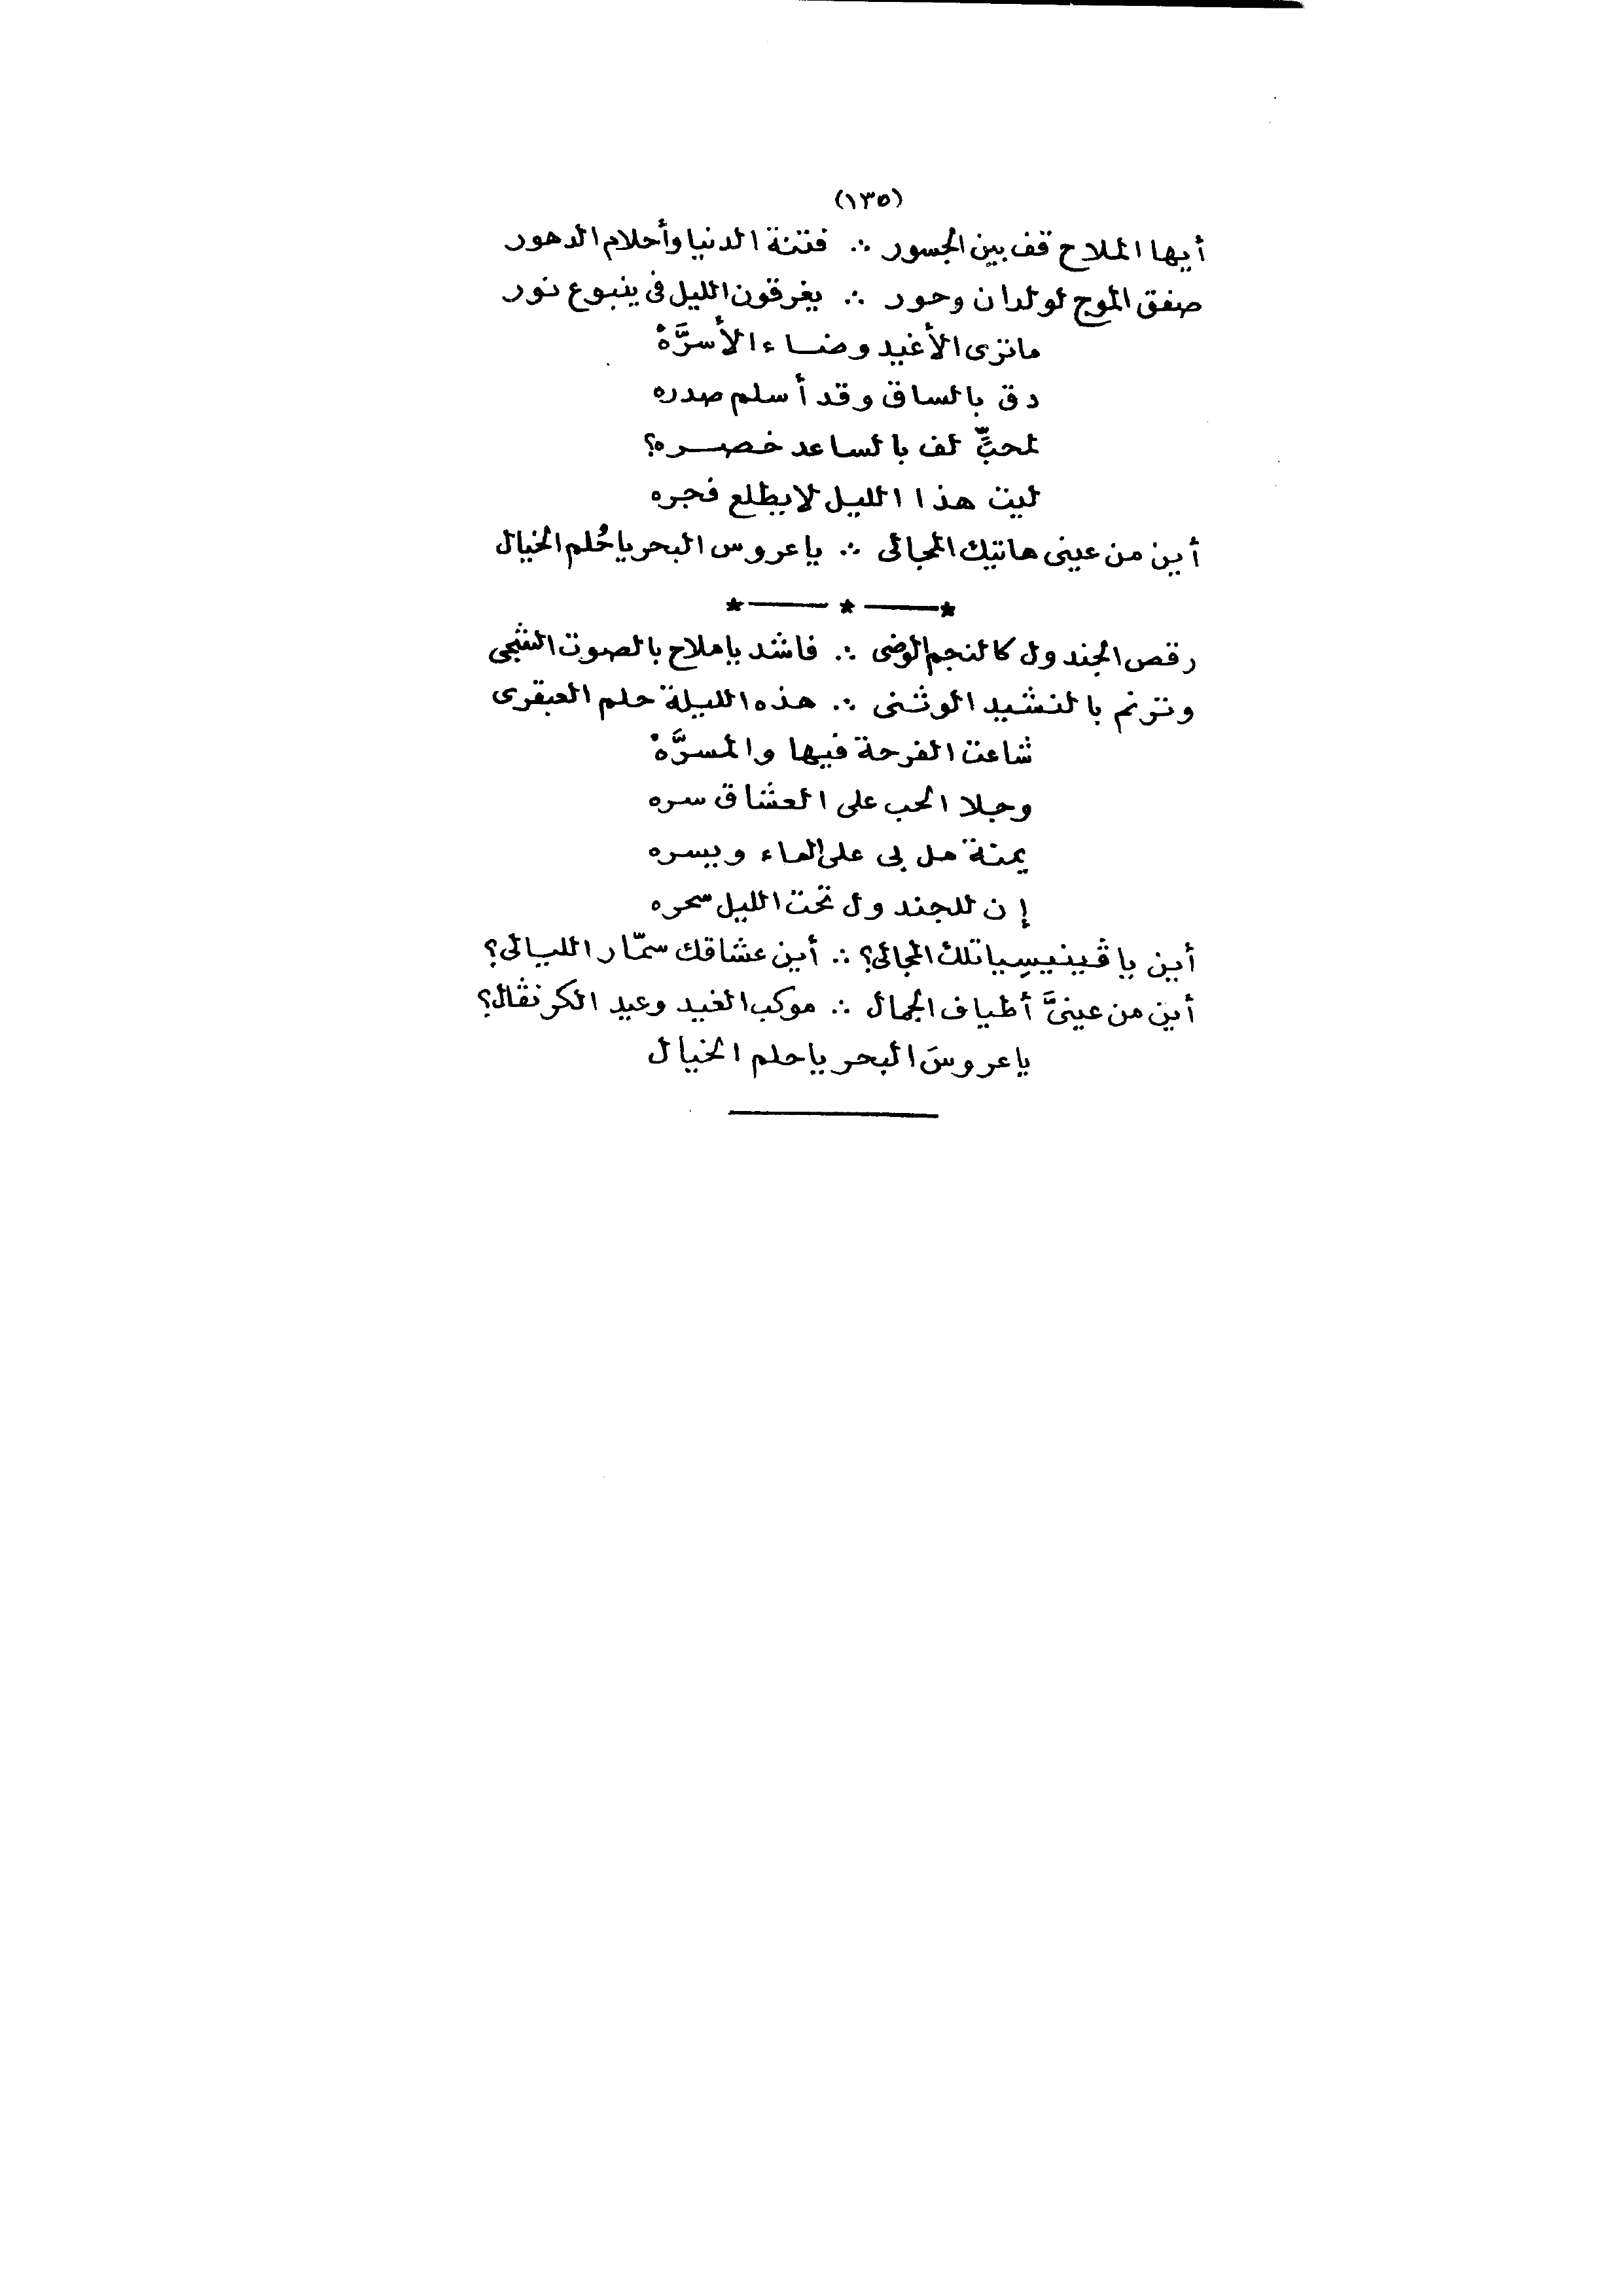 (١٣٥)
أيها الملاح قف بين الجسور ∴ فتنة الدنيا وأحلام الدهور
صفق الموج لولدان وحور ∴ يغرقون الليل فى ينبوع نور
ما ترى الأغيد وضاء الأسرَّهْ
دق بالساق وقد أسلم صدره
لمحبٍّ لف بالساعد خصره؟
ليت هذا الليل لا يطلع فجره
أين من عينى هاتيك المجالى ∴ يا عروس البحر يا حُلم الخيال
* — * — *
رقص الجندول كالنجم الوضى ∴ فاشد يا ملاح بالصوت الشجى
وترنم بالنشيد الوثنى ∴ هذه الليلة حلم العبقرى
شاعت الفرحة فيها والمسرَّهْ
وجلا الحب على العشاق سره
يمنة مل بى على الماء ويسره
إن للجندول تحت الليل سحره
أين يا ڤينيسيا تلك المجالى؟ ∴ أين عشاقك سمّار الليالى؟
أين من عينىَّ أطياف الجمال ∴ موكب الغيد وعيد الكرنڤال؟
يا عروسَ البحر يا حلم الخيال